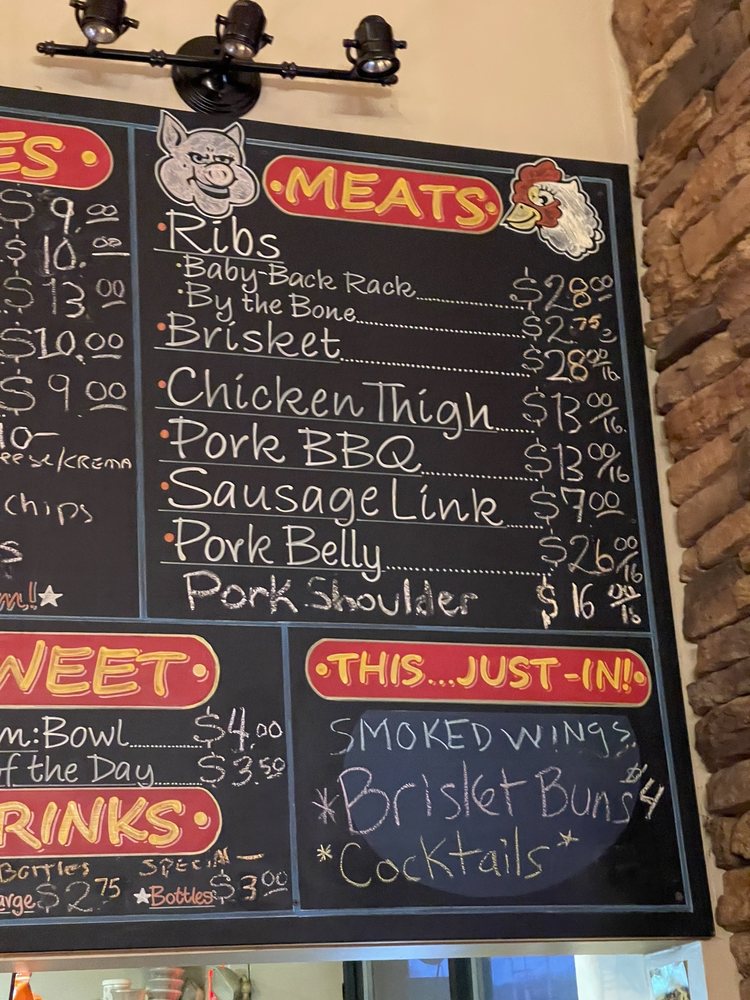 ES
$9.00
$10.00
$3.00
$10.00
$9.00
CHIPS
MEATS
Ribs
Baby-Back Rack $28.00
By the Bone $2.75
Brisket $28.00/lb
Chicken Thigh $13.00/lb
Pork BBQ $13.00/lb
Sausage Link $7.00
Pork Belly $26.00/lb
Pork Shoulder $16.00/lb
WEET
m:Bowl $4.00
of the Day $3.50
RINKS
BOTTLES SPECIAL
arge $2.75 Bottles $3.00
THIS...JUST-IN!
SMOKED WINGS
*Brisket Buns $4
*Cocktails*